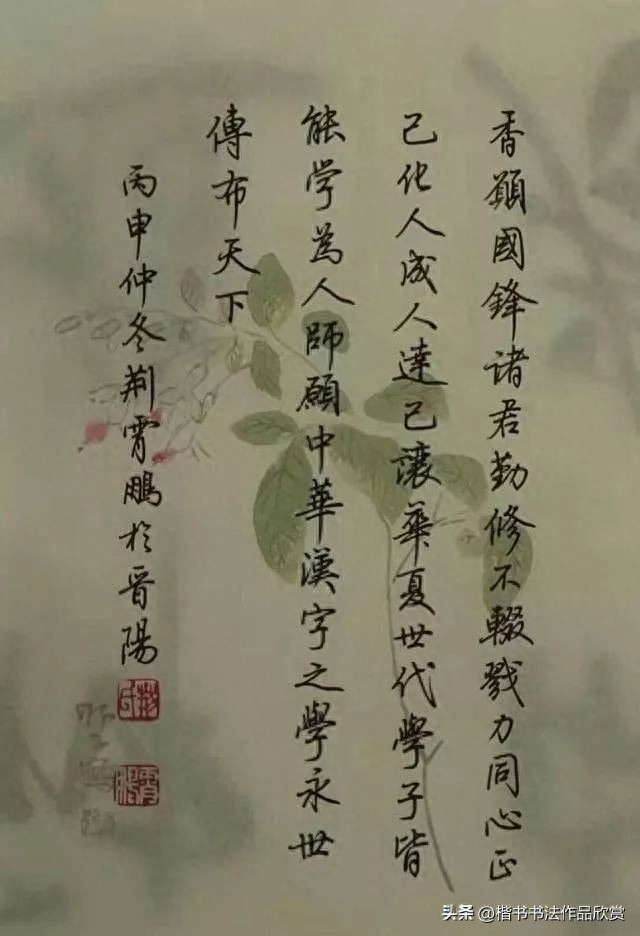 香願國鋒諸君勤修不輟戮力同心正
己化人成人達己讓華夏世代學子皆
能学為人師願中華漢字之學永世
傳布天下
丙申仲冬荊霄鵬於晋陽
荊氏
霄鵬
头条 @楷书书法作品欣赏